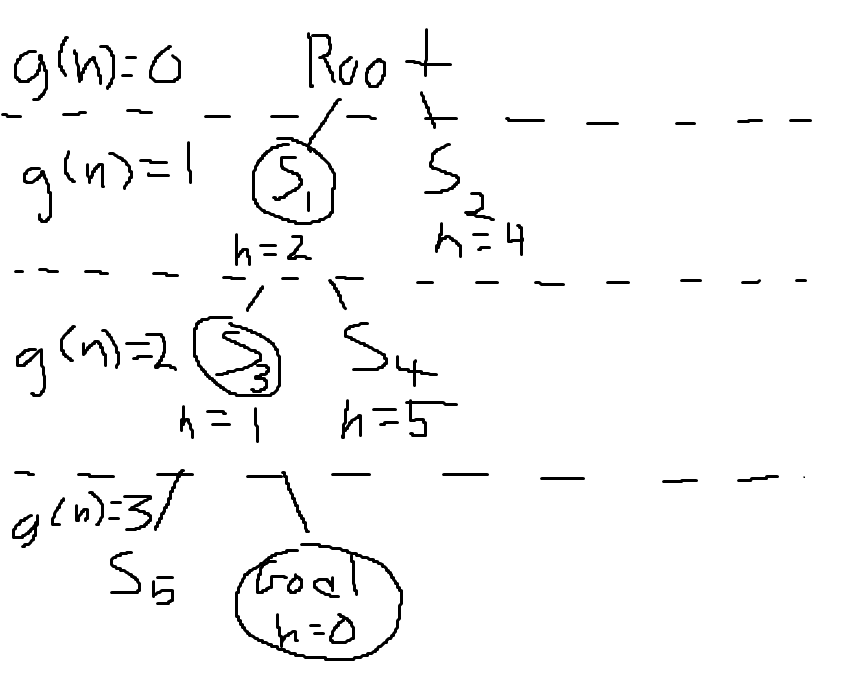 g(n)=0 Root
g(n)=1 S1 S2
h=2 h=4
g(n)=2 S3 S4
h=1 h=5
g(n)=3
S5 Goal
h=0